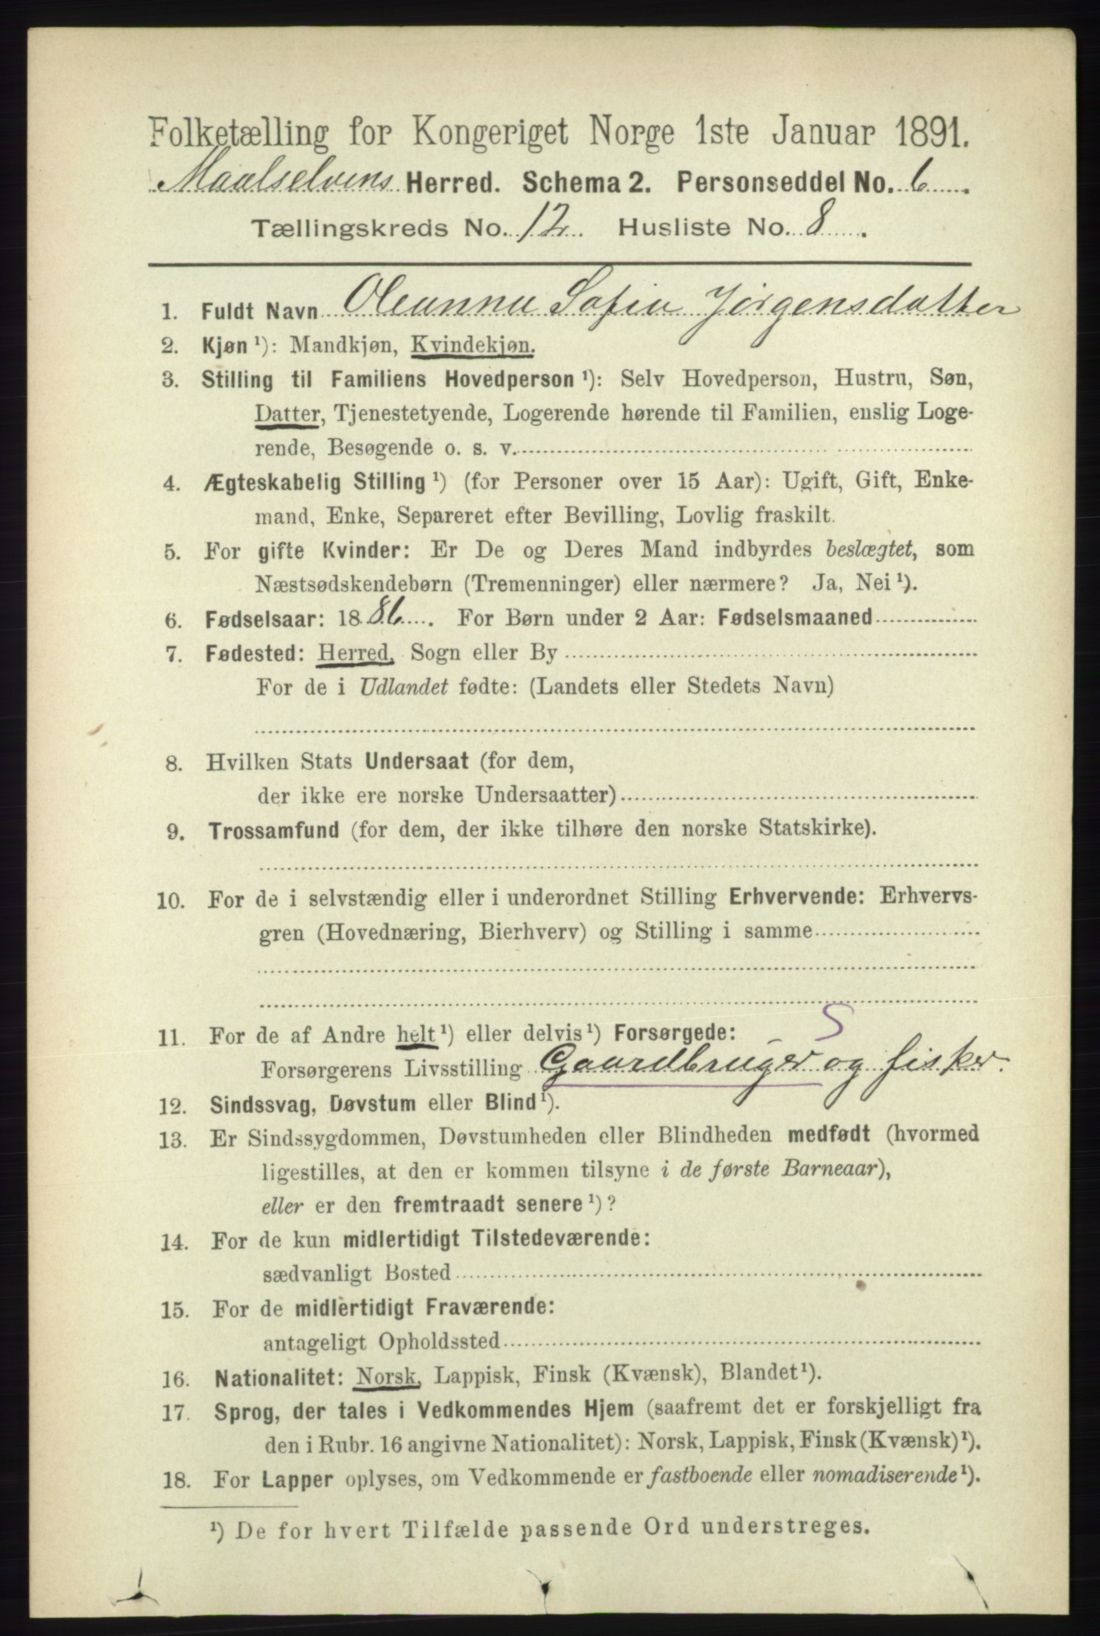 Folketælling for Kongeriget Norge 1ste Januar 1891.
Maalselvens Herred. Schema 2. Personseddel No. 6.
Tællingskreds No. 12. Husliste No. 8.
1. Fuldt Navn Oleanna Sofie Jørgensdatter
2. Kjøn ¹): Mandkjøn, Kvindekjøn.
3. Stilling til Familiens Hovedperson ¹): Selv Hovedperson, Hustru, Søn,
Datter, Tjenestetyende, Logerende hørende til Familien, enslig Loge-
rende, Besøgende o. s. v.
4. Ægteskabelig Stilling ¹) (for Personer over 15 Aar): Ugift, Gift, Enke-
mand, Enke, Separeret efter Bevilling, Lovlig fraskilt.
5. For gifte Kvinder: Er De og Deres Mand indbyrdes beslægtet, som
Næstsødskendebørn (Tremenninger) eller nærmere? Ja, Nei ¹).
6. Fødselsaar: 1886. For Børn under 2 Aar: Fødselsmaaned
7. Fødested: Herred, Sogn eller By
For de i Udlandet fødte: (Landets eller Stedets Navn)
8. Hvilken Stats Undersaat (for dem,
der ikke ere norske Undersaatter)
9. Trossamfund (for dem, der ikke tilhøre den norske Statskirke).
10. For de i selvstændig eller i underordnet Stilling Erhvervende: Erhvervs-
gren (Hovednæring, Bierhverv) og Stilling i samme
S
11. For de af Andre helt ¹) eller delvis ¹) Forsørgede:
Forsørgerens Livsstilling Gaardbruger og fisker.
12. Sindssvag, Døvstum eller Blind ¹).
13. Er Sindssygdommen, Døvstumheden eller Blindheden medfødt (hvormed
ligestilles, at den er kommen tilsyne i de første Barneaar),
eller er den fremtraadt senere ¹)?
14. For de kun midlertidigt Tilstedeværende:
sædvanligt Bosted
15. For de midlertidigt Fraværende:
antageligt Opholdssted
16. Nationalitet: Norsk, Lappisk, Finsk (Kvænsk), Blandet ¹).
17. Sprog, der tales i Vedkommendes Hjem (saafremt det er forskjelligt fra
den i Rubr. 16 angivne Nationalitet): Norsk, Lappisk, Finsk (Kvænsk) ¹).
18. For Lapper oplyses, om Vedkommende er fastboende eller nomadiserende ¹).
¹) De for hvert Tilfælde passende Ord understreges.